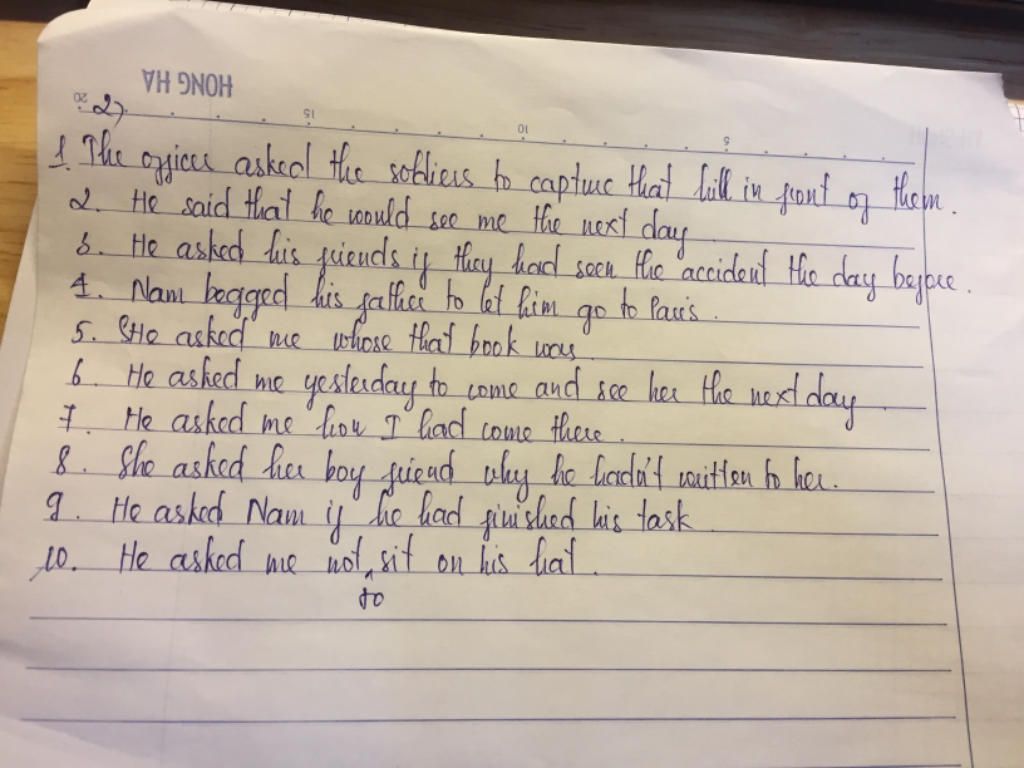 HONG HA
20 15 10 5
2)
1. The officer asked the soldiers to capture that hill in front of them.
2. He said that he would see me the next day
3. He asked his friends if they had seen the accident the day before.
4. Nam begged his father to let him go to Paris.
5. SHe asked me whose that book was
6. He asked me yesterday to come and see her the next day
7. He asked me how I had come there.
8. She asked her boy friend why he hadn't written to her.
9. He asked Nam if he had finished his task
10. He asked me not to sit on his hat.